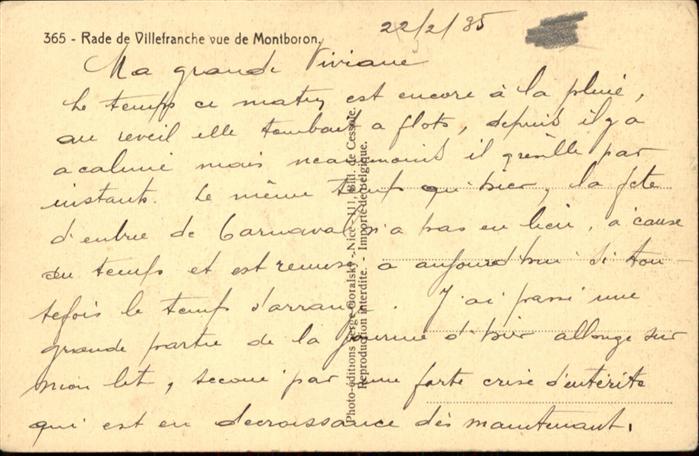 365 - Rade de Villefranche vue de Montboron.
22/2/35
Ma grande Viviane
Le temps ce matin est encore à la pluie,
au reveil elle tombait a flots, depuis il y a
acalmie mais neanmoins il grésille par
instants. Le même temps qu'hier, la fete
d'entrée de Carnaval n'a pas eu lieu, à cause
du temps et est remise a aujourd'hui si tou-
tefois le temps s'arrange. J'ai passé une
grande partie de la journée d'hier allongé sur
mon lit, secoué par une forte crise d'entérite
qui est en decroissance dès maintenant.
Photo-éditions Serge Goralsky - Nice - 111, Bld. de Cessole.
Reproduction interdite. - Importé de Belgique.